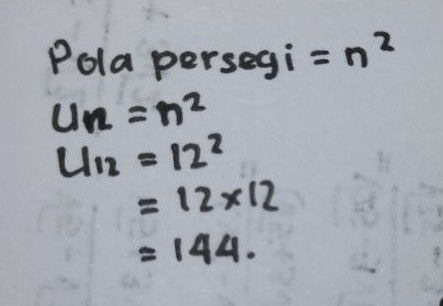 Pola persegi = n²
Un = n²
U12 = 12²
= 12 × 12
= 144.